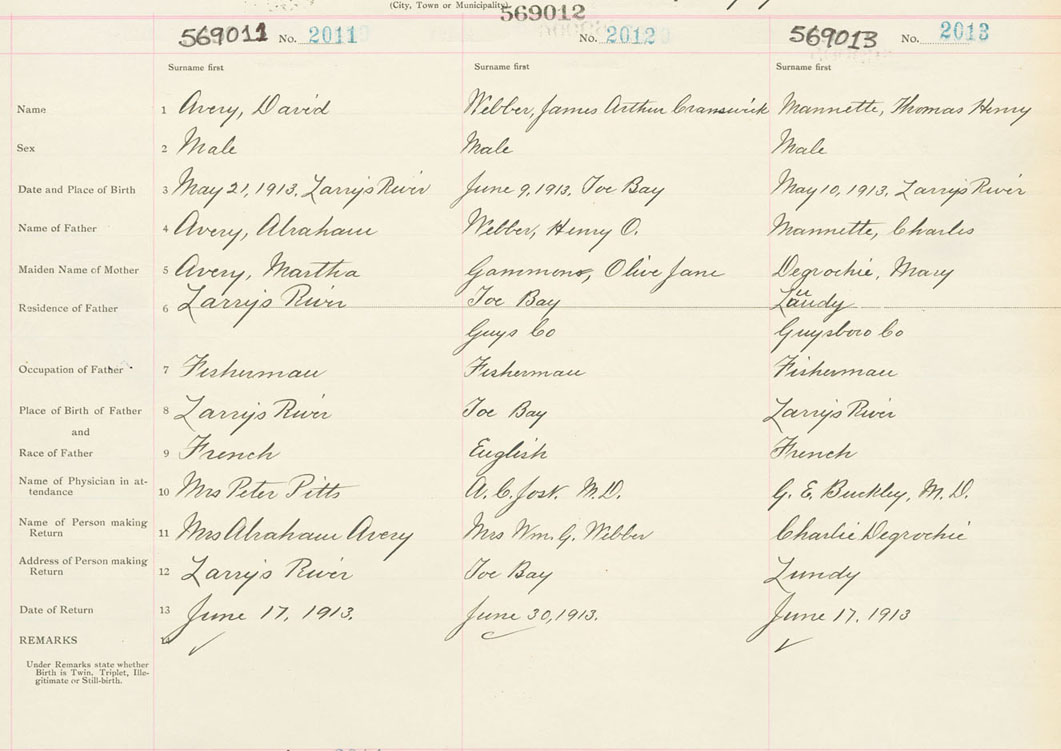 (City, Town or Municipality)
569011 No. 2011 569012 No. 2012 569013 No. 2013
Surname first Surname first Surname first
Name 1 Avery, David Webber, James Arthur Cranswick Mannette, Thomas Henry
Sex 2 Male Male Male
Date and Place of Birth 3 May 21, 1913. Larrys River June 9, 1913, Toe Bay May 10, 1913. Larrys River
Name of Father 4 Avery, Abraham Webber, Henry O. Mannette, Charles
Maiden Name of Mother 5 Avery, Martha Gammons, Olive Jane Degrochie, Mary
Residence of Father 6 Larrys River Toe Bay Lundy
Guys Co Guysboro Co
Occupation of Father 7 Fisherman Fisherman Fisherman
Place of Birth of Father 8 Larrys River Toe Bay Larrys River
and
Race of Father 9 French English French
Name of Physician in at-
tendance 10 Mrs Peter Pitts A. C. Jost. M.D. G. E. Buckley, M.D.
Name of Person making
Return 11 Mrs Abraham Avery Mrs Wm. G. Webber Charlie Degrochie
Address of Person making
Return 12 Larrys River Toe Bay Lundy
Date of Return 13 June 17, 1913. June 30, 1913. June 17, 1913
REMARKS 14
Under Remarks state whether
Birth is Twin, Triplet, Ille-
gitimate or Still-birth.